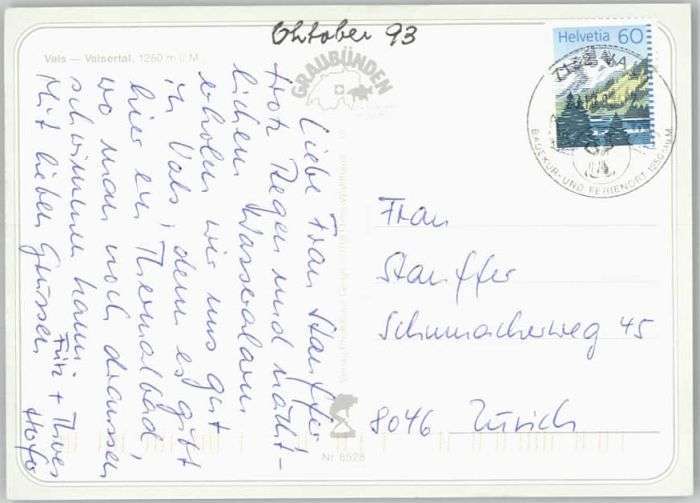 Oktober 93
Vals — Valsertal, 1250 m ü. M.
GRAUBÜNDEN
Liebe Frau Stauffer
trotz Regen und nächt-
lichem Wasseralarm
erholen wir uns gut
in Vals, denn es gibt
hier ein Thermalbad,
wo man noch draussen
schwimmen kann.
Mit lieben Grüssen
Fritz +
Hofer
Helvetia 60
BADEKUR- UND FERIENORT 1250 M ü M
Frau
Stauffer
Schumacherweg 45
8046 Zürich
Nr. 6528